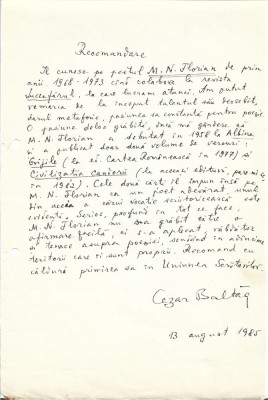 Recomandare
Îl cunosc pe poetul M. N. Florian de prin
anii 1968-1973 cînd colabora la revista
Luceafărul, la care lucram atunci. Am putut
remarca de la început talentul său deosebit,
darul metaforic, pasiunea sa constantă pentru poezie.
O pasiune deloc grăbită, încă mă gîndesc că
M. N. Florian a debutat în 1958 la Albina
și a publicat doar două volume de versuri:
Grijile (la ed. Cartea Românească în 1977) și
Civilizația canierii (la aceeași editură, pare-mi-
în 1982). Cele două cărți îl impun însă pe
M. N. Florian ca un poet adevărat, unul
din aceia a căror vocație scriitoricească este
evidentă, Serios, profund în tot ce face,
M. N. Florian nu s-a grăbit către o
afirmare facilă, ci s-a aplicat, răbdător
și tenace asupra poeziei, scriind în adîncime
teritorii care îi sunt proprii. Recomand cu
căldură primirea sa în Uniunea Scriitorilor.
Cezar Baltag
13 august 1985